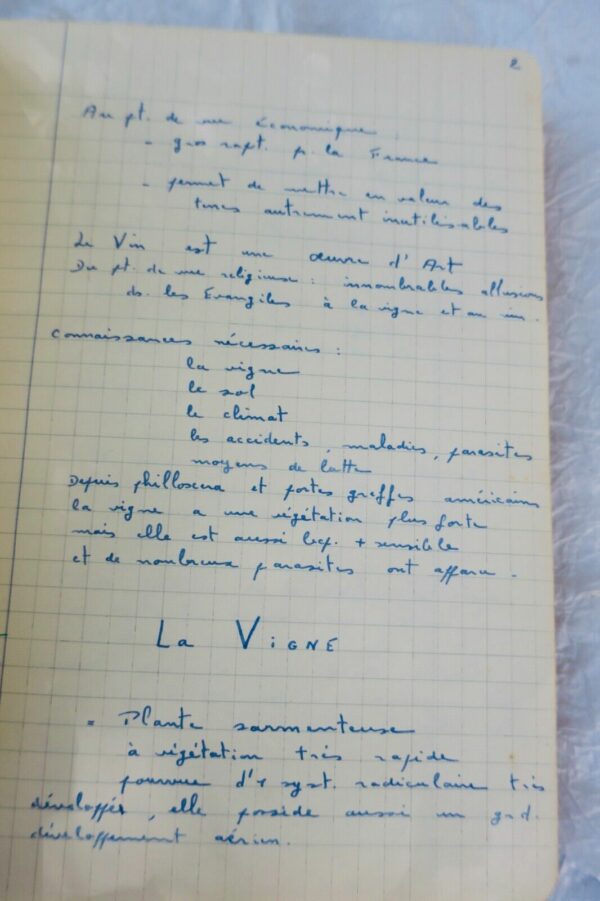 2
Au pt. de vue économique
- gros rapt. p. la France
- permet de mettre en valeur des
terres autrement inutilisables
Le Vin est une œuvre d'Art
Du pt. de vue religieuse : innombrables allusions
ds. les Evangiles à la vigne et au vin.
Connaissances nécessaires :
la vigne
le sol
le climat
les accidents, maladies, parasites
moyens de lutte
Depuis philloxera et portes greffes américains
la vigne a une végétation plus forte
mais elle est aussi bcp. + sensible
et de nombreux parasites ont apparu.
La VIGNE
- Plante sarmenteuse
à végétation très rapide
pourvue d'1 syst. radiculaire très
développés, elle possède aussi un grd.
développement aérien.